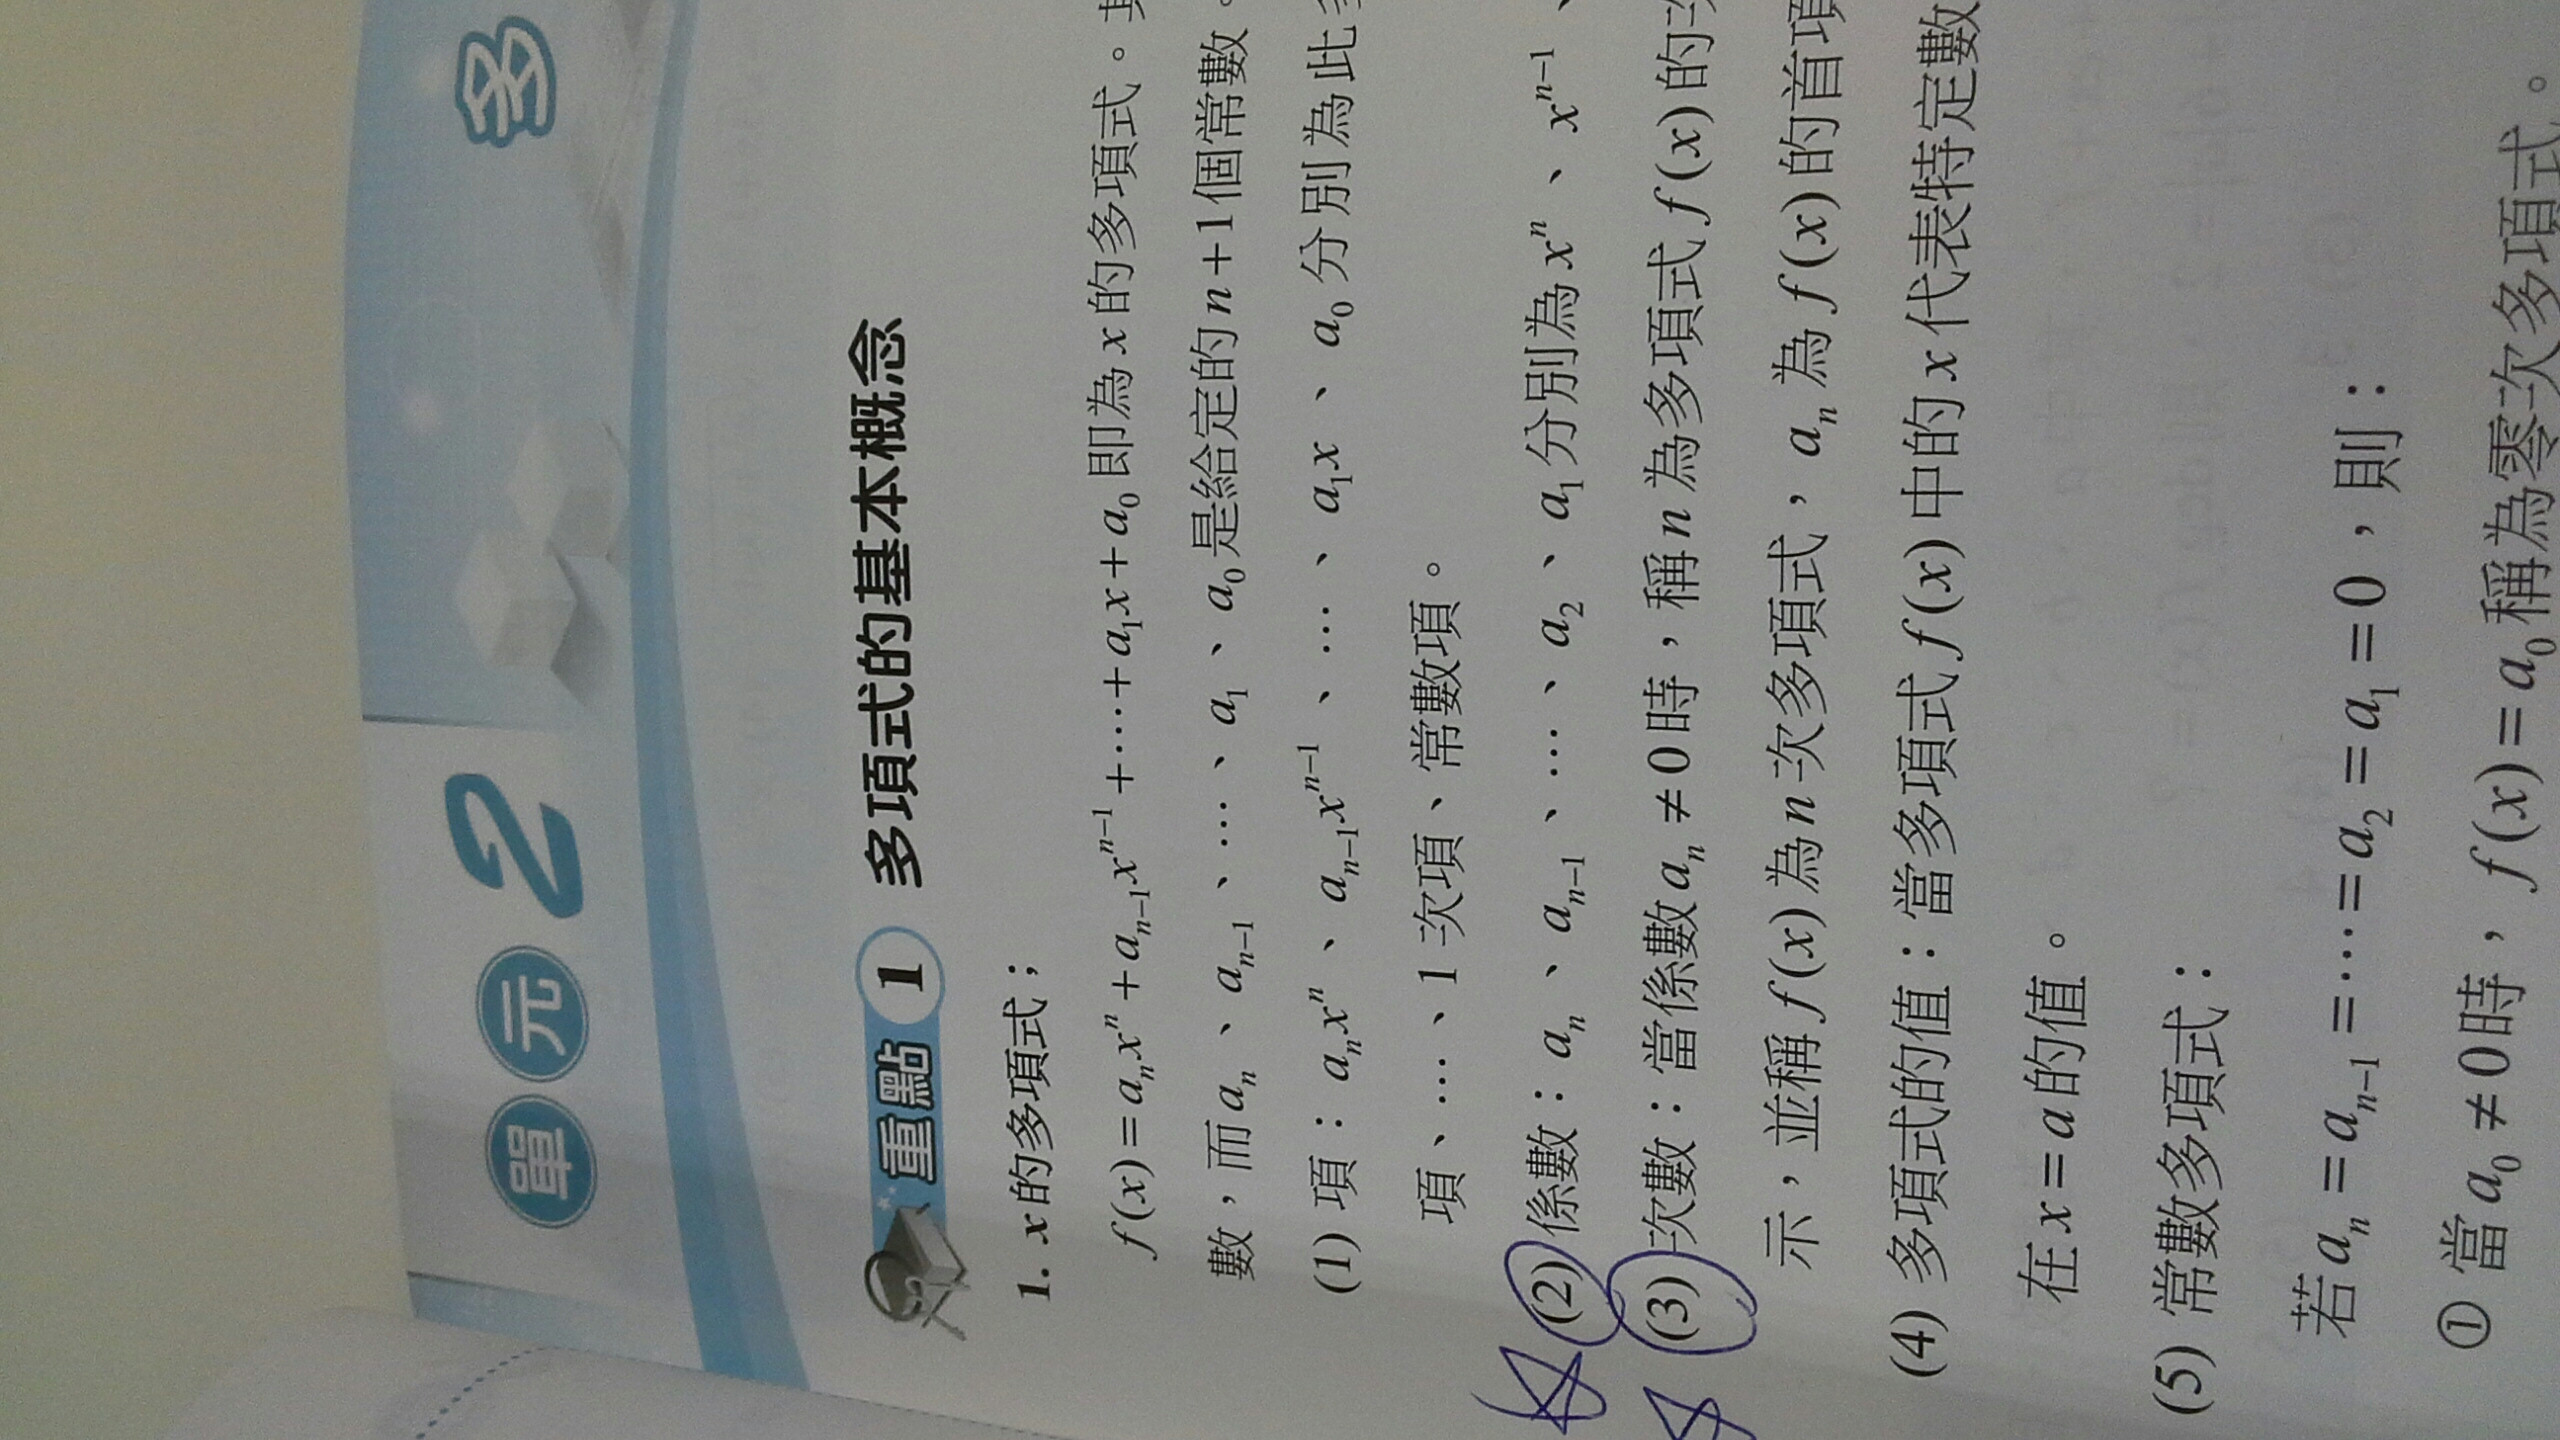 單元 2 多
重點 1 多項式的基本概念
1. x的多項式；
f(x)=aₙxⁿ+aₙ₋₁xⁿ⁻¹+……+a₁x+a₀即為x的多項式。其
數，而aₙ、aₙ₋₁、…、a₁、a₀是給定的n+1個常數。
(1) 項：aₙxⁿ、aₙ₋₁xⁿ⁻¹、…、a₁x、a₀分別為此多
項、…、1次項、常數項。
(2) 係數：aₙ、aₙ₋₁、…、a₂、a₁分別為xⁿ、xⁿ⁻¹、
(3) 次數：當係數aₙ≠0時，稱n為多項式f(x)的次
示，並稱f(x)為n次多項式，aₙ為f(x)的首項
(4) 多項式的值：當多項式f(x)中的x代表特定數
在x=a的值。
(5) 常數多項式：
若aₙ=aₙ₋₁=…=a₂=a₁=0，則：
① 當a₀≠0時，f(x)=a₀稱為零次多項式。